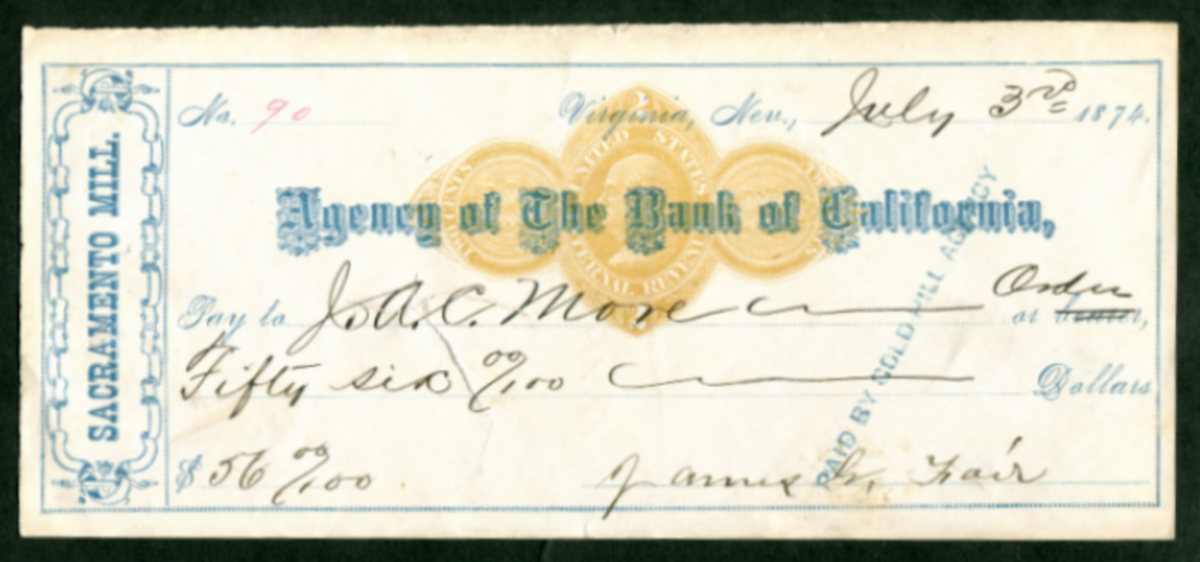 SACRAMENTO MILL.
No. 90 Virginia, Nev., July 3rd 1874.
UNITED STATES
INTERNAL REVENUE
Agency of The Bank of California,
Pay to J. A. C. More or Order bearer,
Fifty six 00/100 Dollars
$ 56 00/100 James G. Fair
PAID BY GOLD HILL AGENCY